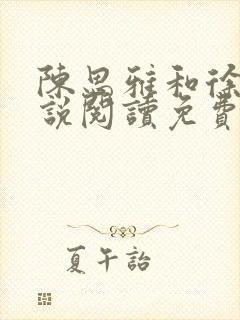 陳思雅和徐
說閱讀免費
夏午詒